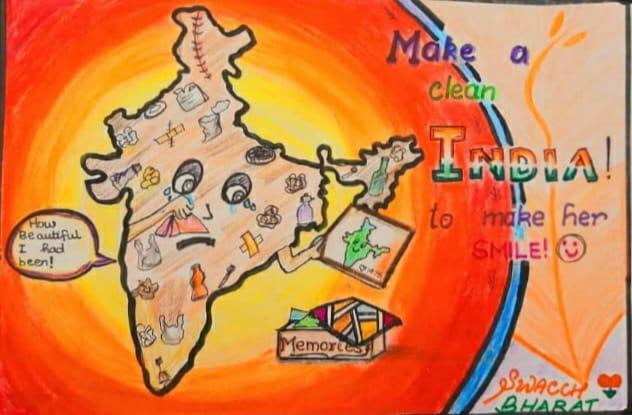 Make a
clean
INDIA!
to make her
SMILE!
How
Beautiful
I had
been!
Memories
SWACCH
BHARAT